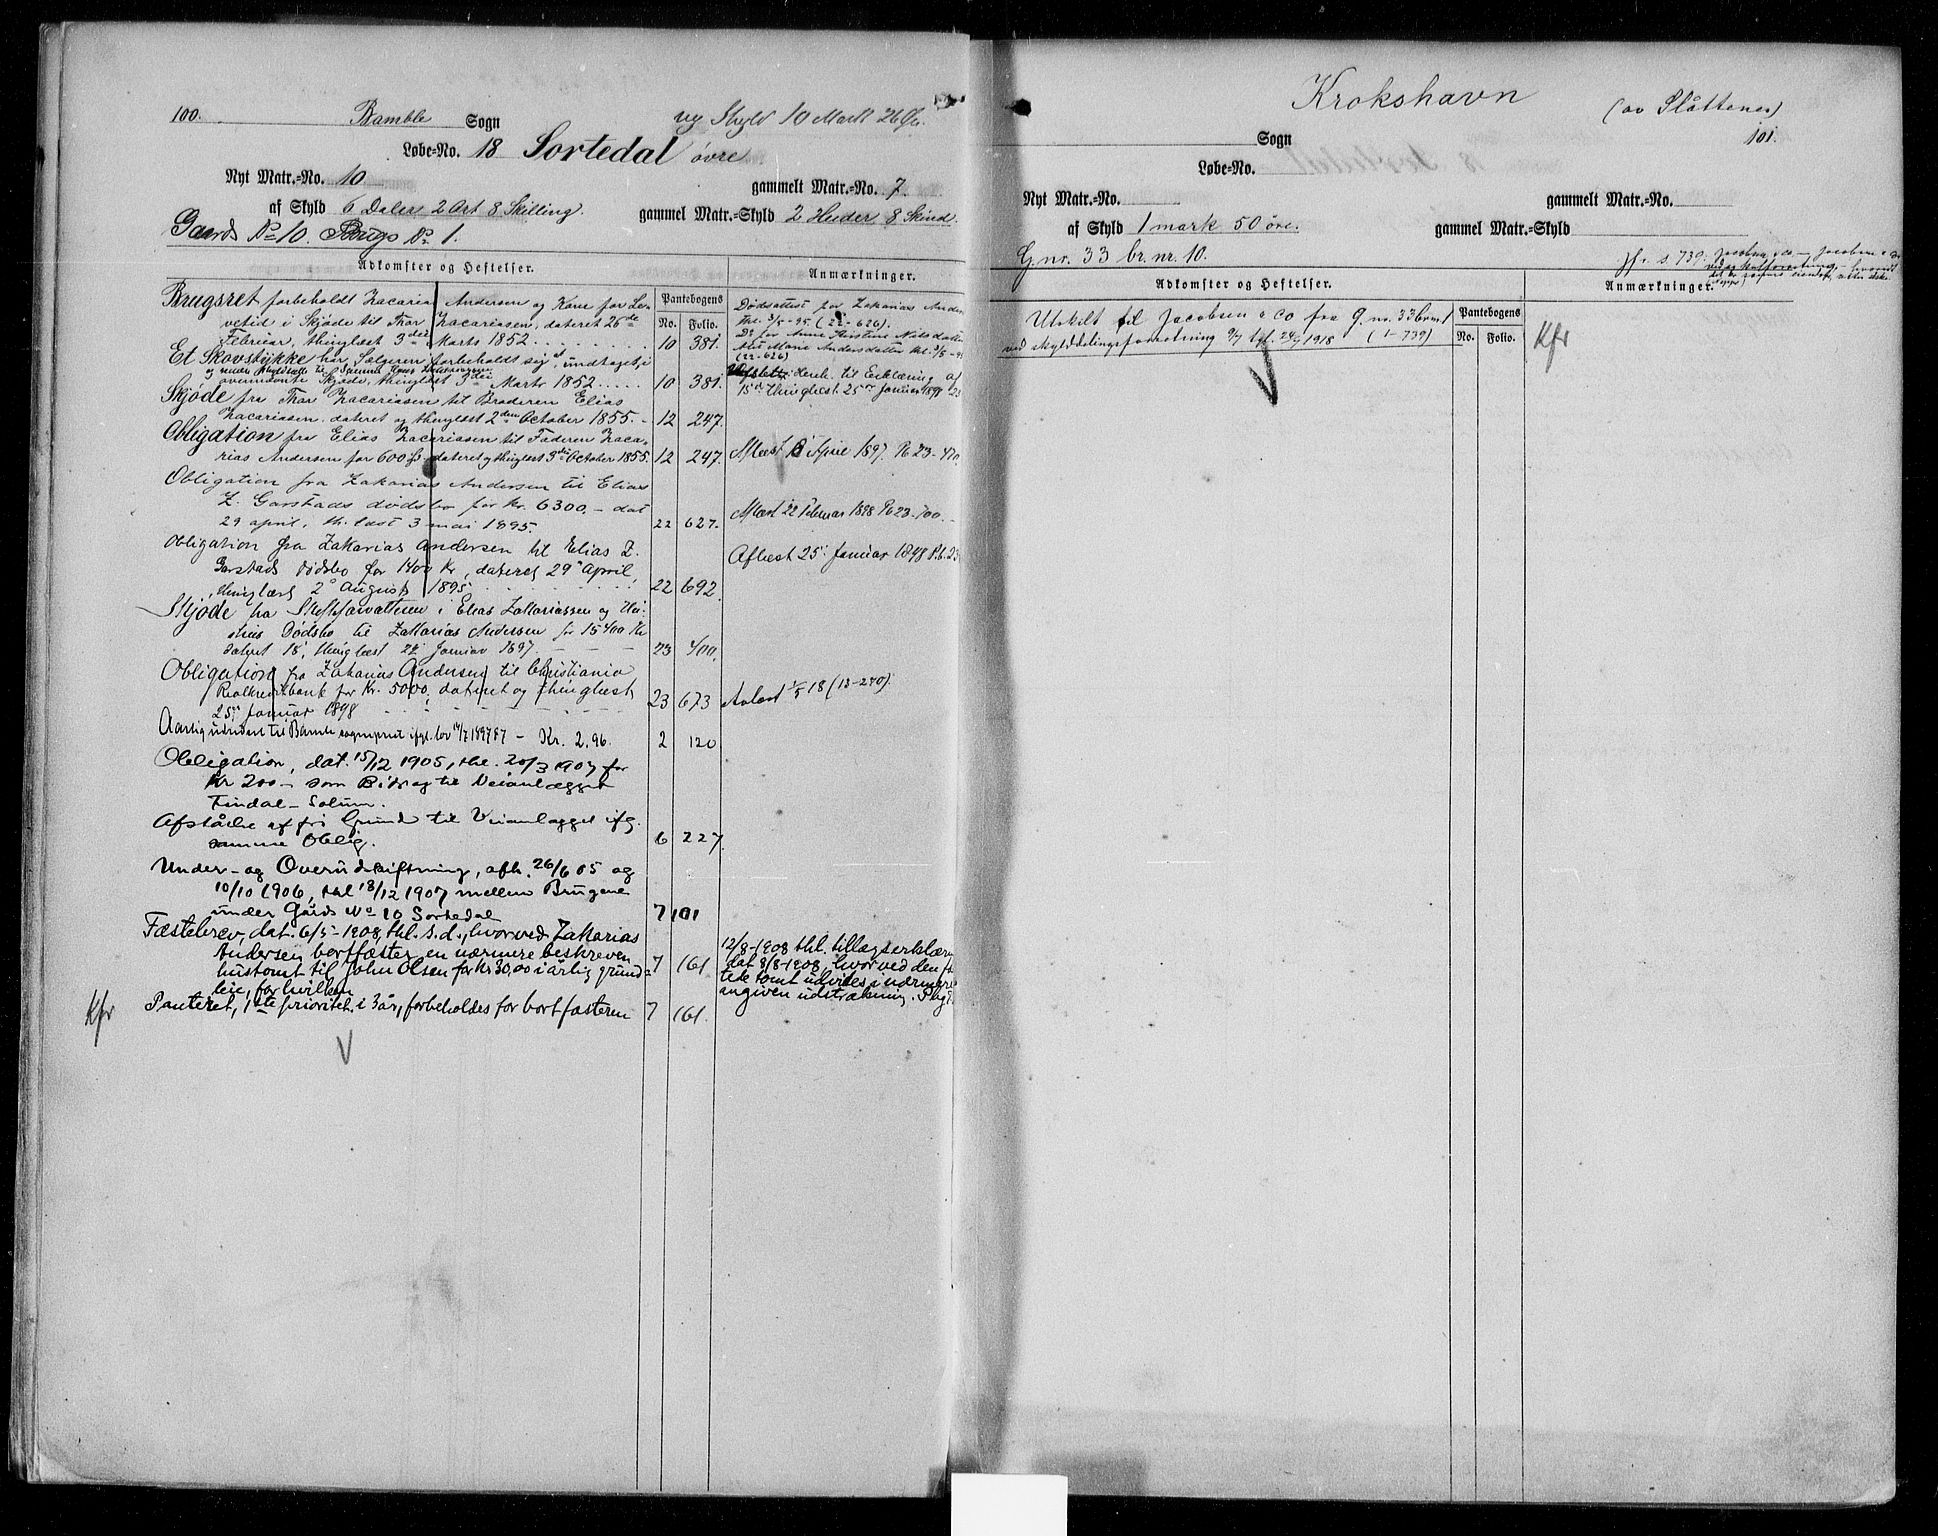 100.
Bamble Sogn
ny Skyld 10 Mark 26 Øre
Løbe=No. 18 Sortedal øvre
Nyt Matr.=No. 10
gammelt Matr.=No. 7.
af Skyld 6 Daler 2 Ort 8 Skilling.
gammel Matr.=Skyld 2 Huder 8 Skind.
Gaards No 10. Brugs No 1.
Adkomster og Heftelser.
Pantebogens
No. Folio.
Anmærkninger.
Brugsret forbeholdt Zacarias Andersen og Kone for Le-
vetid i Skjøde til Thor Zacariasen, dateret 26de
Februar, thinglæst 3die Marts 1852 . . . . 10 381.
Dødsattest for Zakarias Anders
thl. 3/5-95. (22-626).
Do for Anne Kirstine Nilsdatter
(22-626)
Et Skovstykke har Sælgeren forbeholdt sig, undtaget i
ovennævnte Skjøde, thinglæst 3die Marts 1852 . . . . . 10 381.
Udslettes iderh. til Erklæring af
15de thinglæst 25de Januar 1898
Skjøde fra Thor Zacariasen til Broderen Elias
Zacariasen, dateret og thinglæst 2den October 1855. - 12 247.
Obligation fra Elias Zacariasen til Faderen Zaca-
rias Andersen for 600 Spd. dateret og thinglæst 3die October 1855. 12 247.
Aflæst April 1897. Pb 23-470.
Obligation fra Zakarias Andersen til Elias
Z. Garstads dødsbo for kr. 6300. - dat
29 april, th. læst 3 mai 1895. 22 627.
Aflæst 22 Februar 1898 Pb 23-700.-
Obligation fra Zakarias Andersen til Elias Z.
Garstads dødsbo for 1400 Kr, dateret 29 April,
thinglæst 2 August 1895 . . . . 22 692.
Aflæst 25. Januar 1898 P.b. 23
Skjøde fra Skifteforvalteren i Elias Zakariassen og Hu-
strues Dødsbo til Zakarias Andersen for 15400 Kr
dateret 18, thinglæst 22 Januar 1897. - - - 23 400.
Obligation fra Zakarias Andersen til Christiania
Realkreditbank for Kr. 5000, dateret og thinglæst
25. Januar 1898 23 673
Avlæst 1/5 18 (13-240).
Aarlig udredsel til Bamble sognepræst ifgl. lov 14/7 1897 § 7 - Kr. 2.96. 2 120
Obligation, dat. 15/12 1905, thl. 20/3 1907 for
Kr 200 - som Bidrag til Veianlægget
Findal - Solum.
Afståelse af fri Grund til Veianlægget ifg.
samme Oblig. 6 227.
Under- og Overudskiftning, afh. 26/6 05 og
10/10 1906, thl 18/12 1907 mellem Brugene
under Gårds No 10 Sortedal 7 101
Fæstebrev, dat. 6/5-1908, thl. s.d., hvorved Zakarias
Andersen bortfæster en nærmere beskreven
hustomt til John Olsen for kr 30,00 i årlig grund- 7 161
leie, for hvilken
12/8-1908 thl. tillægserklær
dat 8/8-1908, hvorved den fæ
tede tomt udvides i nærmere
angiven udstrækning. Pbg 7
Kfr Panteret, 1ste prioritet i 3 år, forbeholdes for bortfæsteren 7 161.
V
Krokshavn
(av Slåttenes)
Sogn
101.
Løbe=No.
Nyt Matr.=No.
gammelt Matr.=No.
af Skyld 1 mark 50 øre.
gammel Matr.=Skyld
G.nr. 33 br. nr. 10.
jfr. s. 739.
Adkomster og Heftelser.
Pantebogens
No. Folio.
Anmærkninger.
Utskilt til Jacobsen & co fra g.nr. 33 br.nr. 1
ved skylddelingsforretning 9/7 tgl. 24/9 1918 (1-739)
Kfr
V